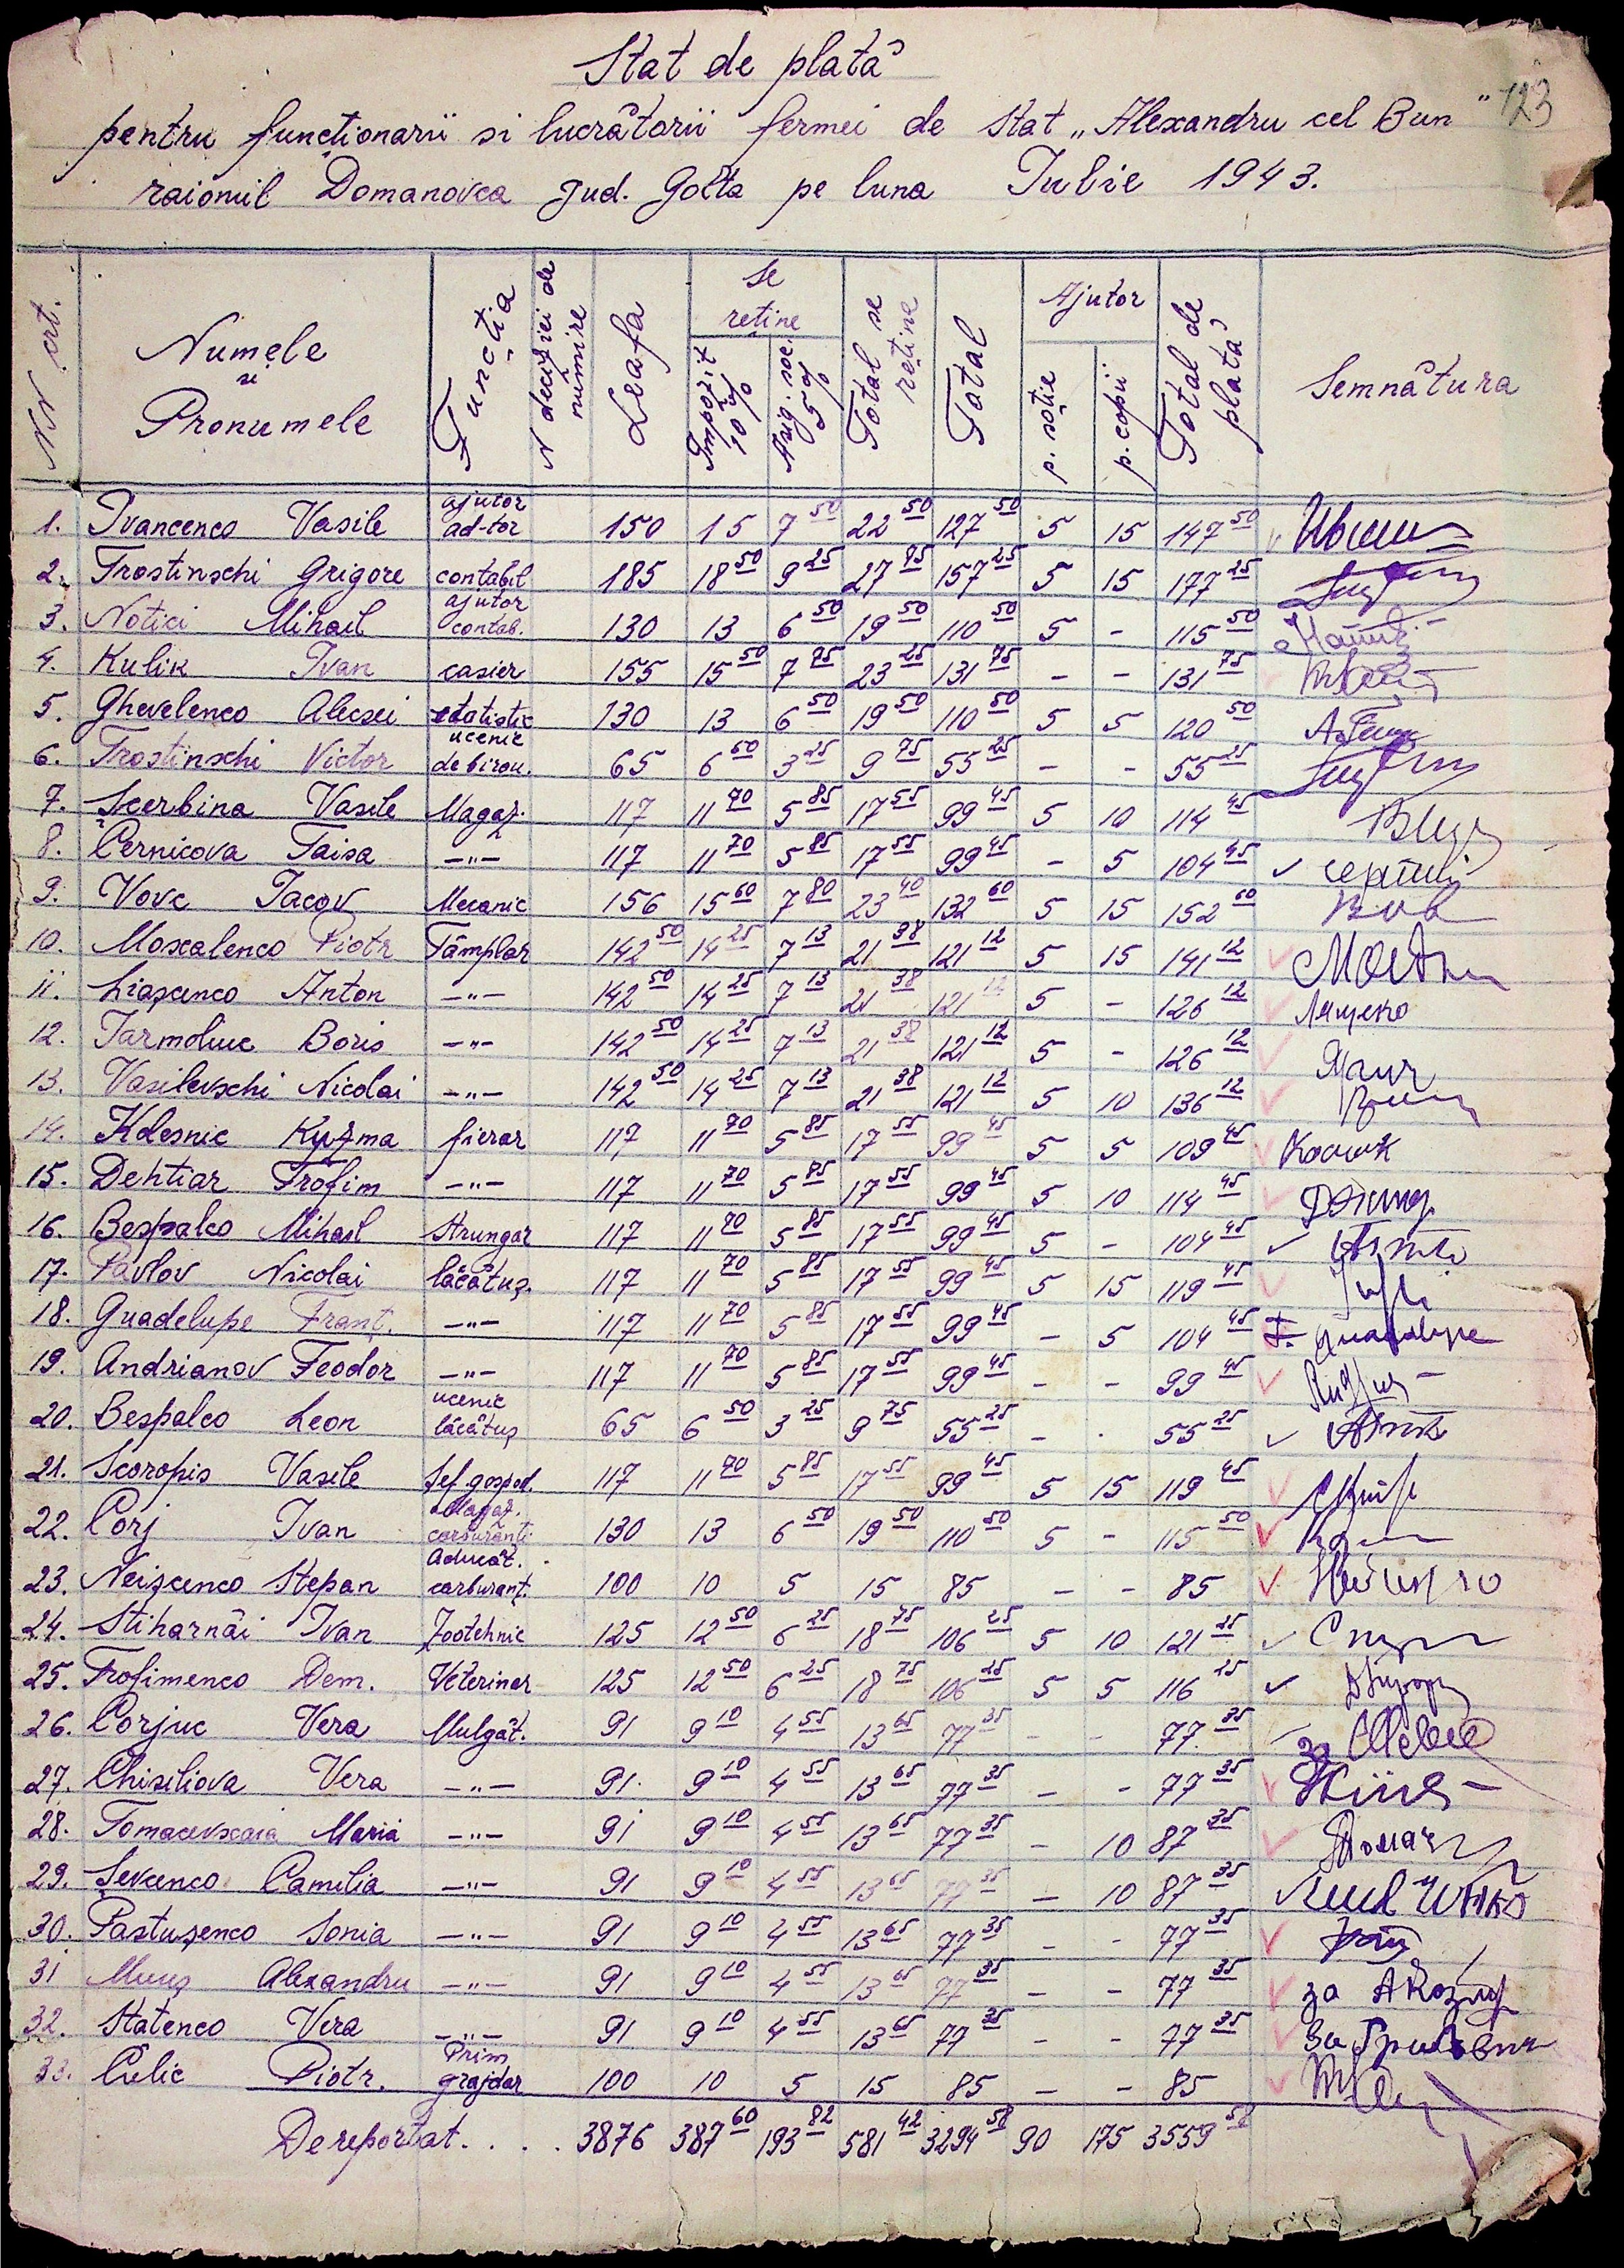 123
Stat de plată
pentru funcționarii si lucrătorii fermei de Stat „Alexandru cel Bun"
raionul Domanovca jud. Golta pe luna Iulie 1943.
Nr crt. Numele si Pronumele Funcția N deciziei de numire Leafa Se reține Impozit 10% Asig. soc. 5% Total se reține Total Ajutor p. soție p. copii Total de plată Semnătura
1. Ivancenco Vasile ajutor ad-tor 150 15 7 50 22 50 127 50 5 15 147 50
2. Trostinschi Grigore contabil 185 18 50 9 25 27 75 157 25 5 15 177 25
3. Notici Mihail ajutor contab. 130 13 6 50 19 50 110 50 5 - 115 50
4. Kulik Ivan casier 155 15 50 7 75 23 25 131 75 - - 131 75
5. Ghevelenco Alecsei statistic 130 13 6 50 19 50 110 50 5 5 120 50
6. Trostinschi Victor ucenic de birou. 65 6 50 3 25 9 75 55 25 - - 55 25
7. Scerbina Vasile Magaz. 117 11 70 5 85 17 55 99 45 5 10 114 45
8. Cernicova Taisa -"- 117 11 70 5 85 17 55 99 45 - 5 104 45
9. Vovc Iacov Mecanic 156 15 60 7 80 23 40 132 60 5 15 152 60
10. Moscalenco Piotr Tâmplar 142 50 14 25 7 13 21 38 121 12 5 15 141 12
11. Liașcenco Anton -"- 142 50 14 25 7 13 21 38 121 12 5 - 126 12 Лящено
12. Iarmoliuc Boris -"- 142 50 14 25 7 13 21 38 121 12 5 - 126 12
13. Vasilevschi Nicolai -"- 142 50 14 25 7 13 21 38 121 12 5 10 136 12
14. Kolesnic Kuzma fierar 117 11 70 5 85 17 55 99 45 5 5 109 45
15. Dehtiar Trofim -"- 117 11 70 5 85 17 55 99 45 5 10 114 45
16. Bespalco Mihail Strungar 117 11 70 5 85 17 55 99 45 5 - 104 45
17. Pavlov Nicolai lăcătuș. 117 11 70 5 85 17 55 99 45 5 15 119 45
18. Guadelupe Franț. -"- 117 11 70 5 85 17 55 99 45 - 5 104 45 F. Guadalupe
19. Andrianov Feodor -"- 117 11 70 5 85 17 55 99 45 - - 99 45
20. Bespalco Leon ucenic lăcătuș 65 6 50 3 25 9 75 55 25 - - 55 25
21. Scoropis Vasile Șef gospod. 117 11 70 5 85 17 55 99 45 5 15 119 45
22. Corj Ivan Magaz. carburanți 130 13 6 50 19 50 110 50 5 - 115 50
23. Neizcenco Stepan aducăt. carburanț. 100 10 5 15 85 - - 85
24. Stiharnâi Ivan Zootehnic 125 12 50 6 25 18 75 106 25 5 10 121 25
25. Trofimenco Dem. Veterinar 125 12 50 6 25 18 75 106 25 5 5 116 25
26. Corjuc Vera Mulgăt. 91 9 10 4 55 13 65 77 35 - - 77 35 за
27. Chisiliova Vera -"- 91 9 10 4 55 13 65 77 35 - - 77 35
28. Tomacevscaia Maria -"- 91 9 10 4 55 13 65 77 35 - 10 87 35
29. Sevcenco Camilia -"- 91 9 10 4 55 13 65 77 35 - 10 87 35
30. Pastușenco Sonia -"- 91 9 10 4 55 13 65 77 35 - - 77 35
31 Alexandru -"- 91 9 10 4 55 13 65 77 35 - - 77 35 за
32. Statenco Vera -"- 91 9 10 4 55 13 65 77 35 - - 77 35 за
33. Culic Piotr. Prim grajdar 100 10 5 15 85 - - 85
De reportat. . . . 3876 387 60 193 82 581 42 3294 58 90 175 3559 58